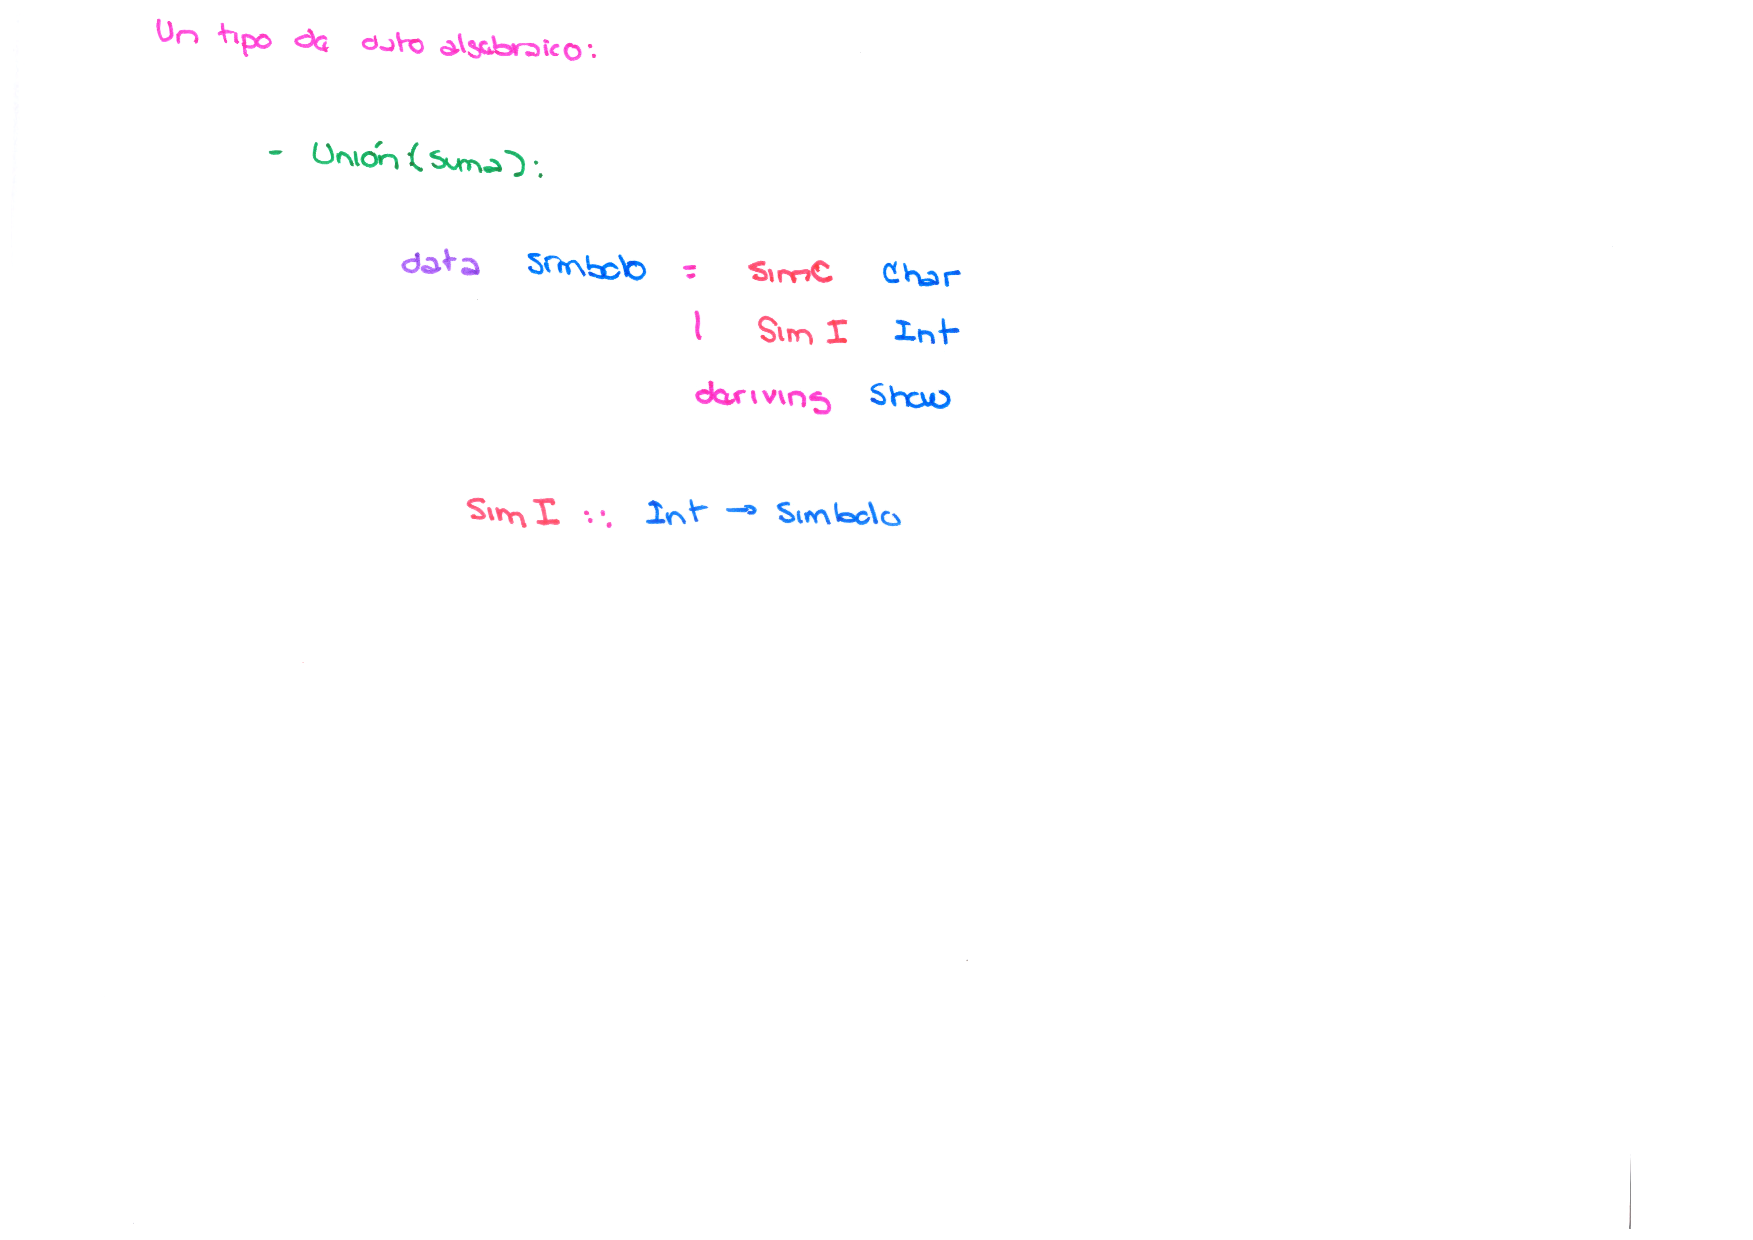 Un tipo de dato algebraico:
- Unión (suma):
data Simbolo = SimC Char
| SimI Int
deriving Show
SimI :: Int → Simbolo